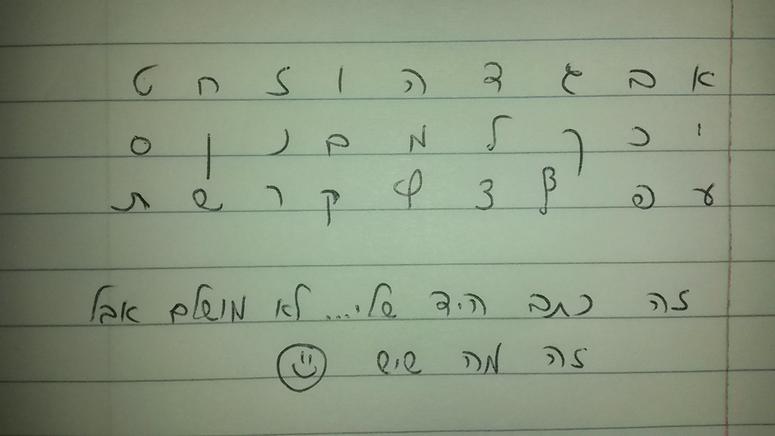 א ב ג ד ה ו ז ח ט
י כ ך ל מ ם נ ן ס
ע פ ף צ ץ ק ר ש ת
זה כתב היד שלי... לא מושלם אבל
זה מה שיש ☺